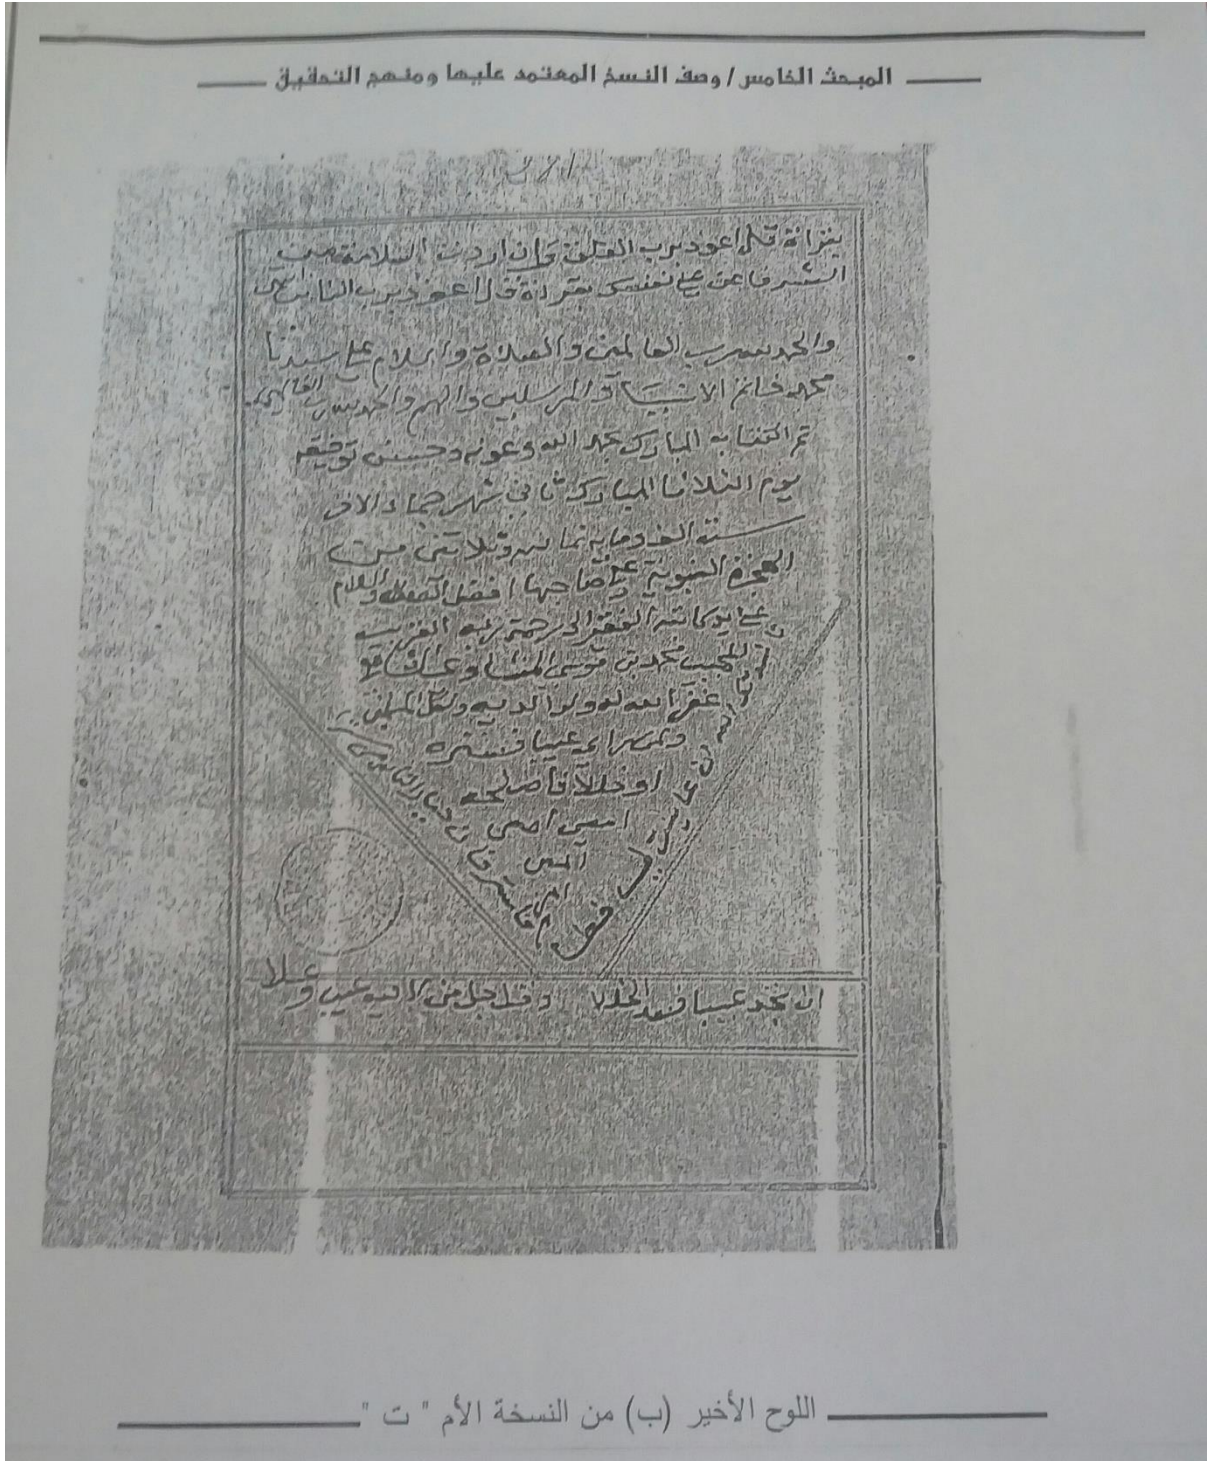 المبحث الخامس / وصف النسخ المعتمد عليها ومنهج التحقيق
بقراة قل اعوذ برب الفلق وان اردت السلامة من
الشر فاعن علي نفسك بقراة قل اعوذ برب الناس
والحمد لله رب العالمين والصلاة والسلام علي سيدنا
محمد خاتم الانبيا والمرسلين والهم والحمد لله رب العالمين
تم الكتاب المبارك بحمد الله وعونه وحسن توفيقه
يوم الثلاثا المبارك ثاني شهر جماد الاول
سنة الف ومايه ثمانيه وثلاثين من
الهجرة النبوية علي صاحبها افضل الصلاة والسلام
علي يد كاتبه الفقير الي رحمة ربه القريب
المجيب محمد بن موسي
غفر الله له ولوالديه ولكل المسلمين
ولمن راي عيبا فستره
او خللا فاصلحه
امين امين
امين
ان تجد عيبا فسد الخللا جل من لا فيه عيب وعلا
اللوح الأخير (ب) من النسخة الأم " ت "